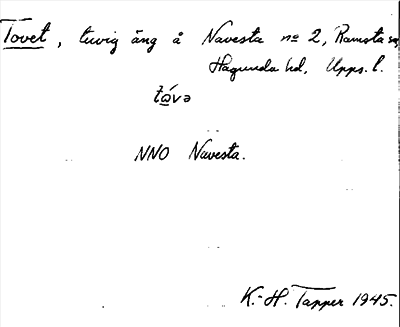 Tovet, tuvig äng å Navesta no 2, Ramsta sn,
Hagunda hd, Upps. l.
tǻvə
NNO Navesta.
K.-H. Tapper 1945.